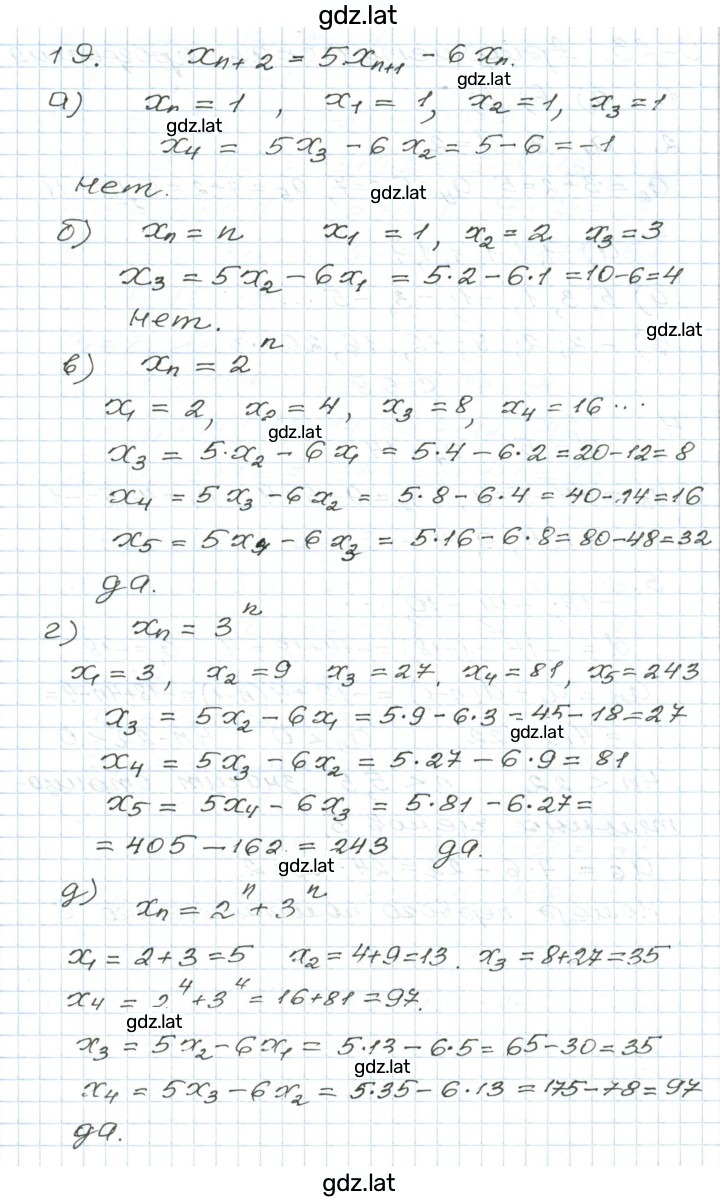 gdz.lat
19. xₙ₊₂ = 5xₙ₊₁ - 6xₙ.
gdz.lat
а) xₙ = 1 , x₁ = 1, x₂ = 1, x₃ = 1
gdz.lat
x₄ = 5x₃ - 6x₂ = 5 - 6 = -1
нет.
gdz.lat
б) xₙ = n x₁ = 1, x₂ = 2 x₃ = 3
x₃ = 5x₂ - 6x₁ = 5·2 - 6·1 = 10 - 6 = 4
нет.
gdz.lat
в) xₙ = 2ⁿ
x₁ = 2, x₂ = 4, x₃ = 8, x₄ = 16 ...
gdz.lat
x₃ = 5·x₂ - 6x₁ = 5·4 - 6·2 = 20 - 12 = 8
x₄ = 5x₃ - 6x₂ = 5·8 - 6·4 = 40 - 14 = 16
x₅ = 5x₄ - 6x₃ = 5·16 - 6·8 = 80 - 48 = 32
да.
г) xₙ = 3ⁿ
x₁ = 3, x₂ = 9 x₃ = 27, x₄ = 81, x₅ = 243
x₃ = 5x₂ - 6x₁ = 5·9 - 6·3 = 45 - 18 = 27
gdz.lat
x₄ = 5x₃ - 6x₂ = 5·27 - 6·9 = 81
x₅ = 5x₄ - 6x₃ = 5·81 - 6·27 =
= 405 - 162 = 243 да.
gdz.lat
д) xₙ = 2ⁿ + 3ⁿ
x₁ = 2 + 3 = 5 x₂ = 4 + 9 = 13. x₃ = 8 + 27 = 35
x₄ = 2⁴ + 3⁴ = 16 + 81 = 97.
gdz.lat
x₃ = 5x₂ - 6x₁ = 5·13 - 6·5 = 65 - 30 = 35
gdz.lat
x₄ = 5x₃ - 6x₂ = 5·35 - 6·13 = 175 - 78 = 97
да.
gdz.lat